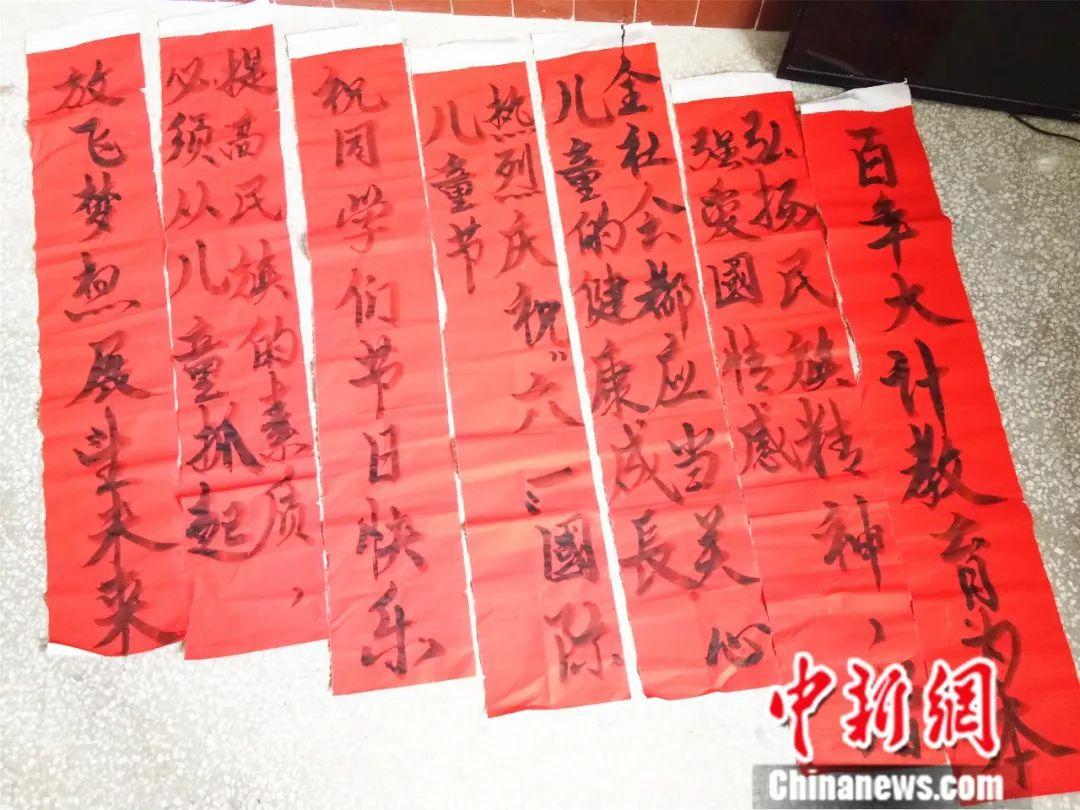 百年大计教育为本
弘扬民族精神、
强爱國情感
全社会都应当关心
儿童的健康成長
热烈庆祝"六一"國际
儿童节
祝同学们节日快乐
提高民族的素质、
必须从儿童抓起
放飞梦想展望未来
中新網
Chinanews.com